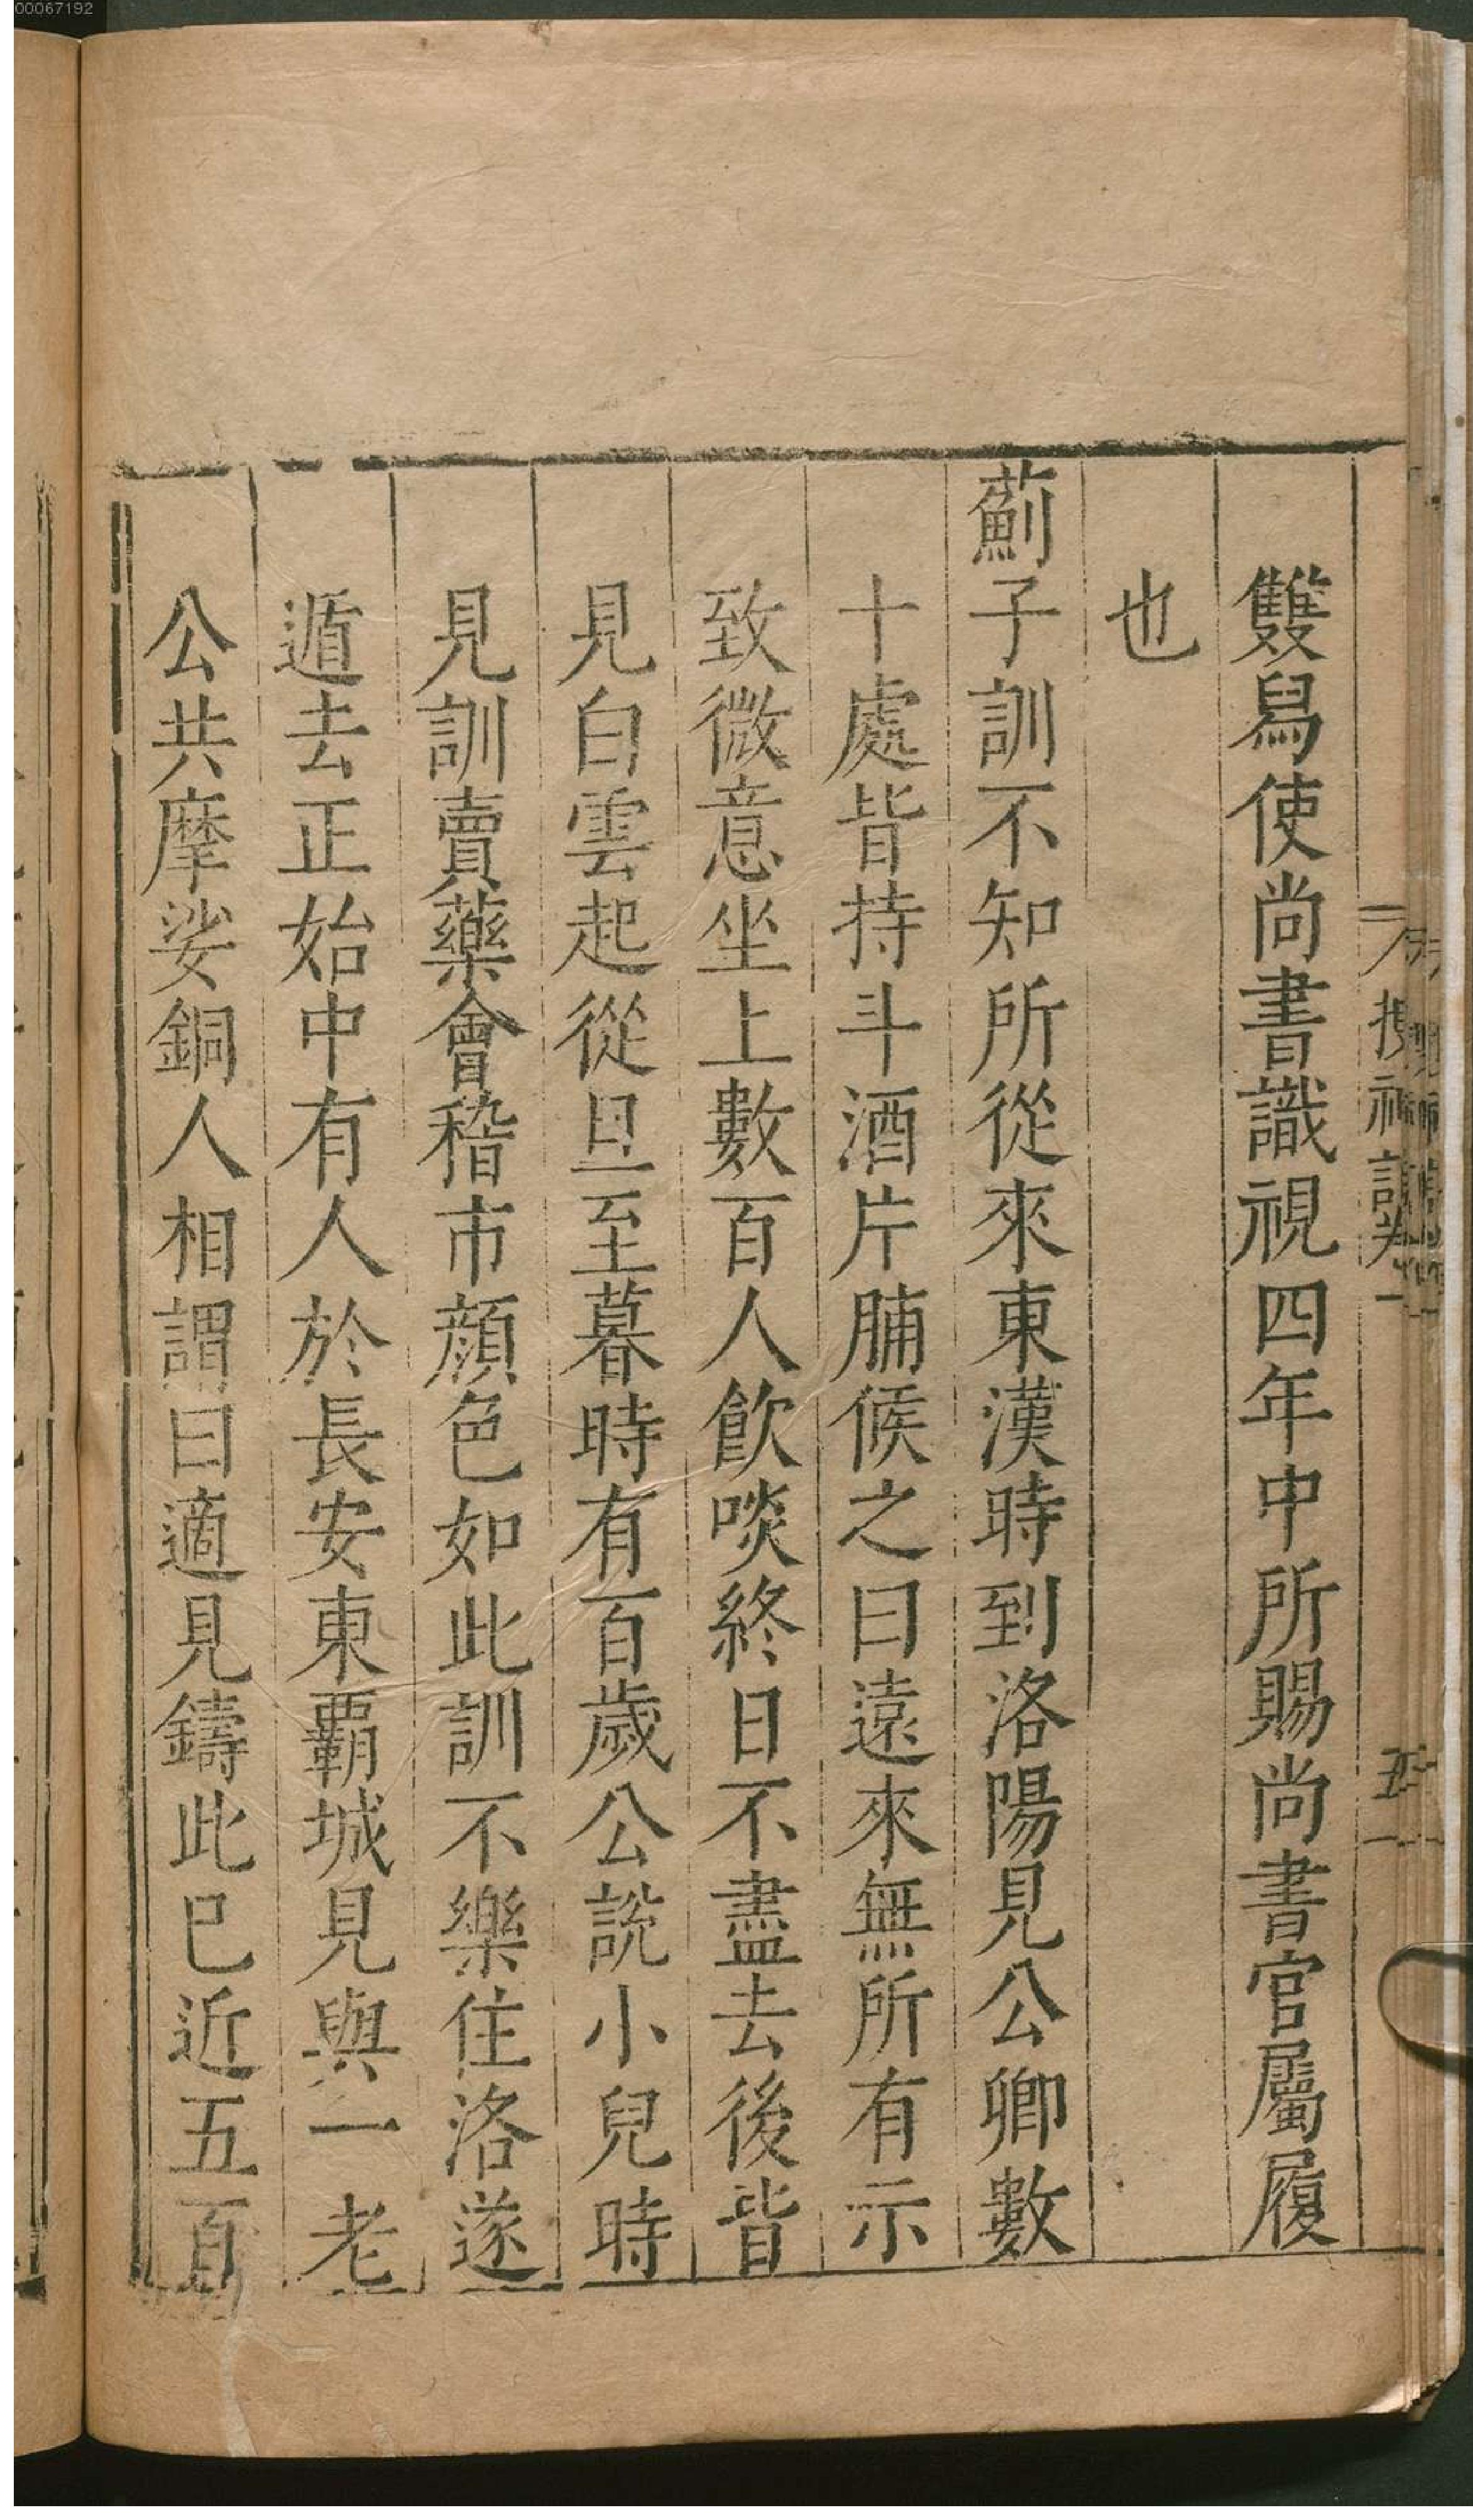 雙舄使尚書識視四年中所賜尚書官屬履
也
薊子訓不知所從來東漢時到洛陽見公卿數
十處皆持斗酒片脯候之曰遠來無所有示
致微意坐上數百人飲啖終日不盡去後皆
見白雲起從旦至暮時有百歲公說小兒時
見訓賣藥會稽市顏色如此訓不樂住洛遂
遁去正始中有人於長安東霸城見與一老
公共摩娑銅人相謂曰適見鑄此已近五百
00067192